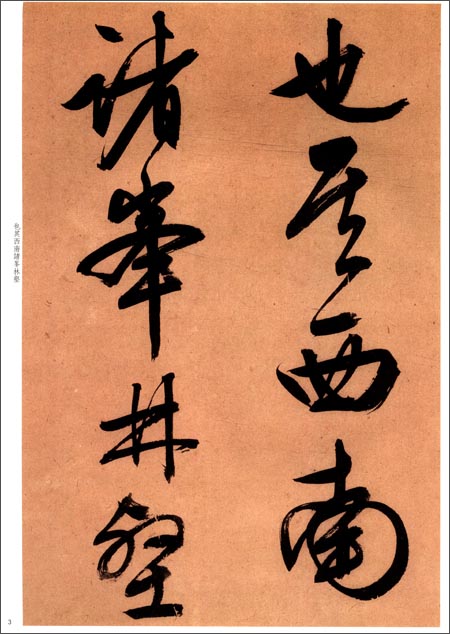 也其西南
諸峯林壑
也其西南諸峯林壑
3